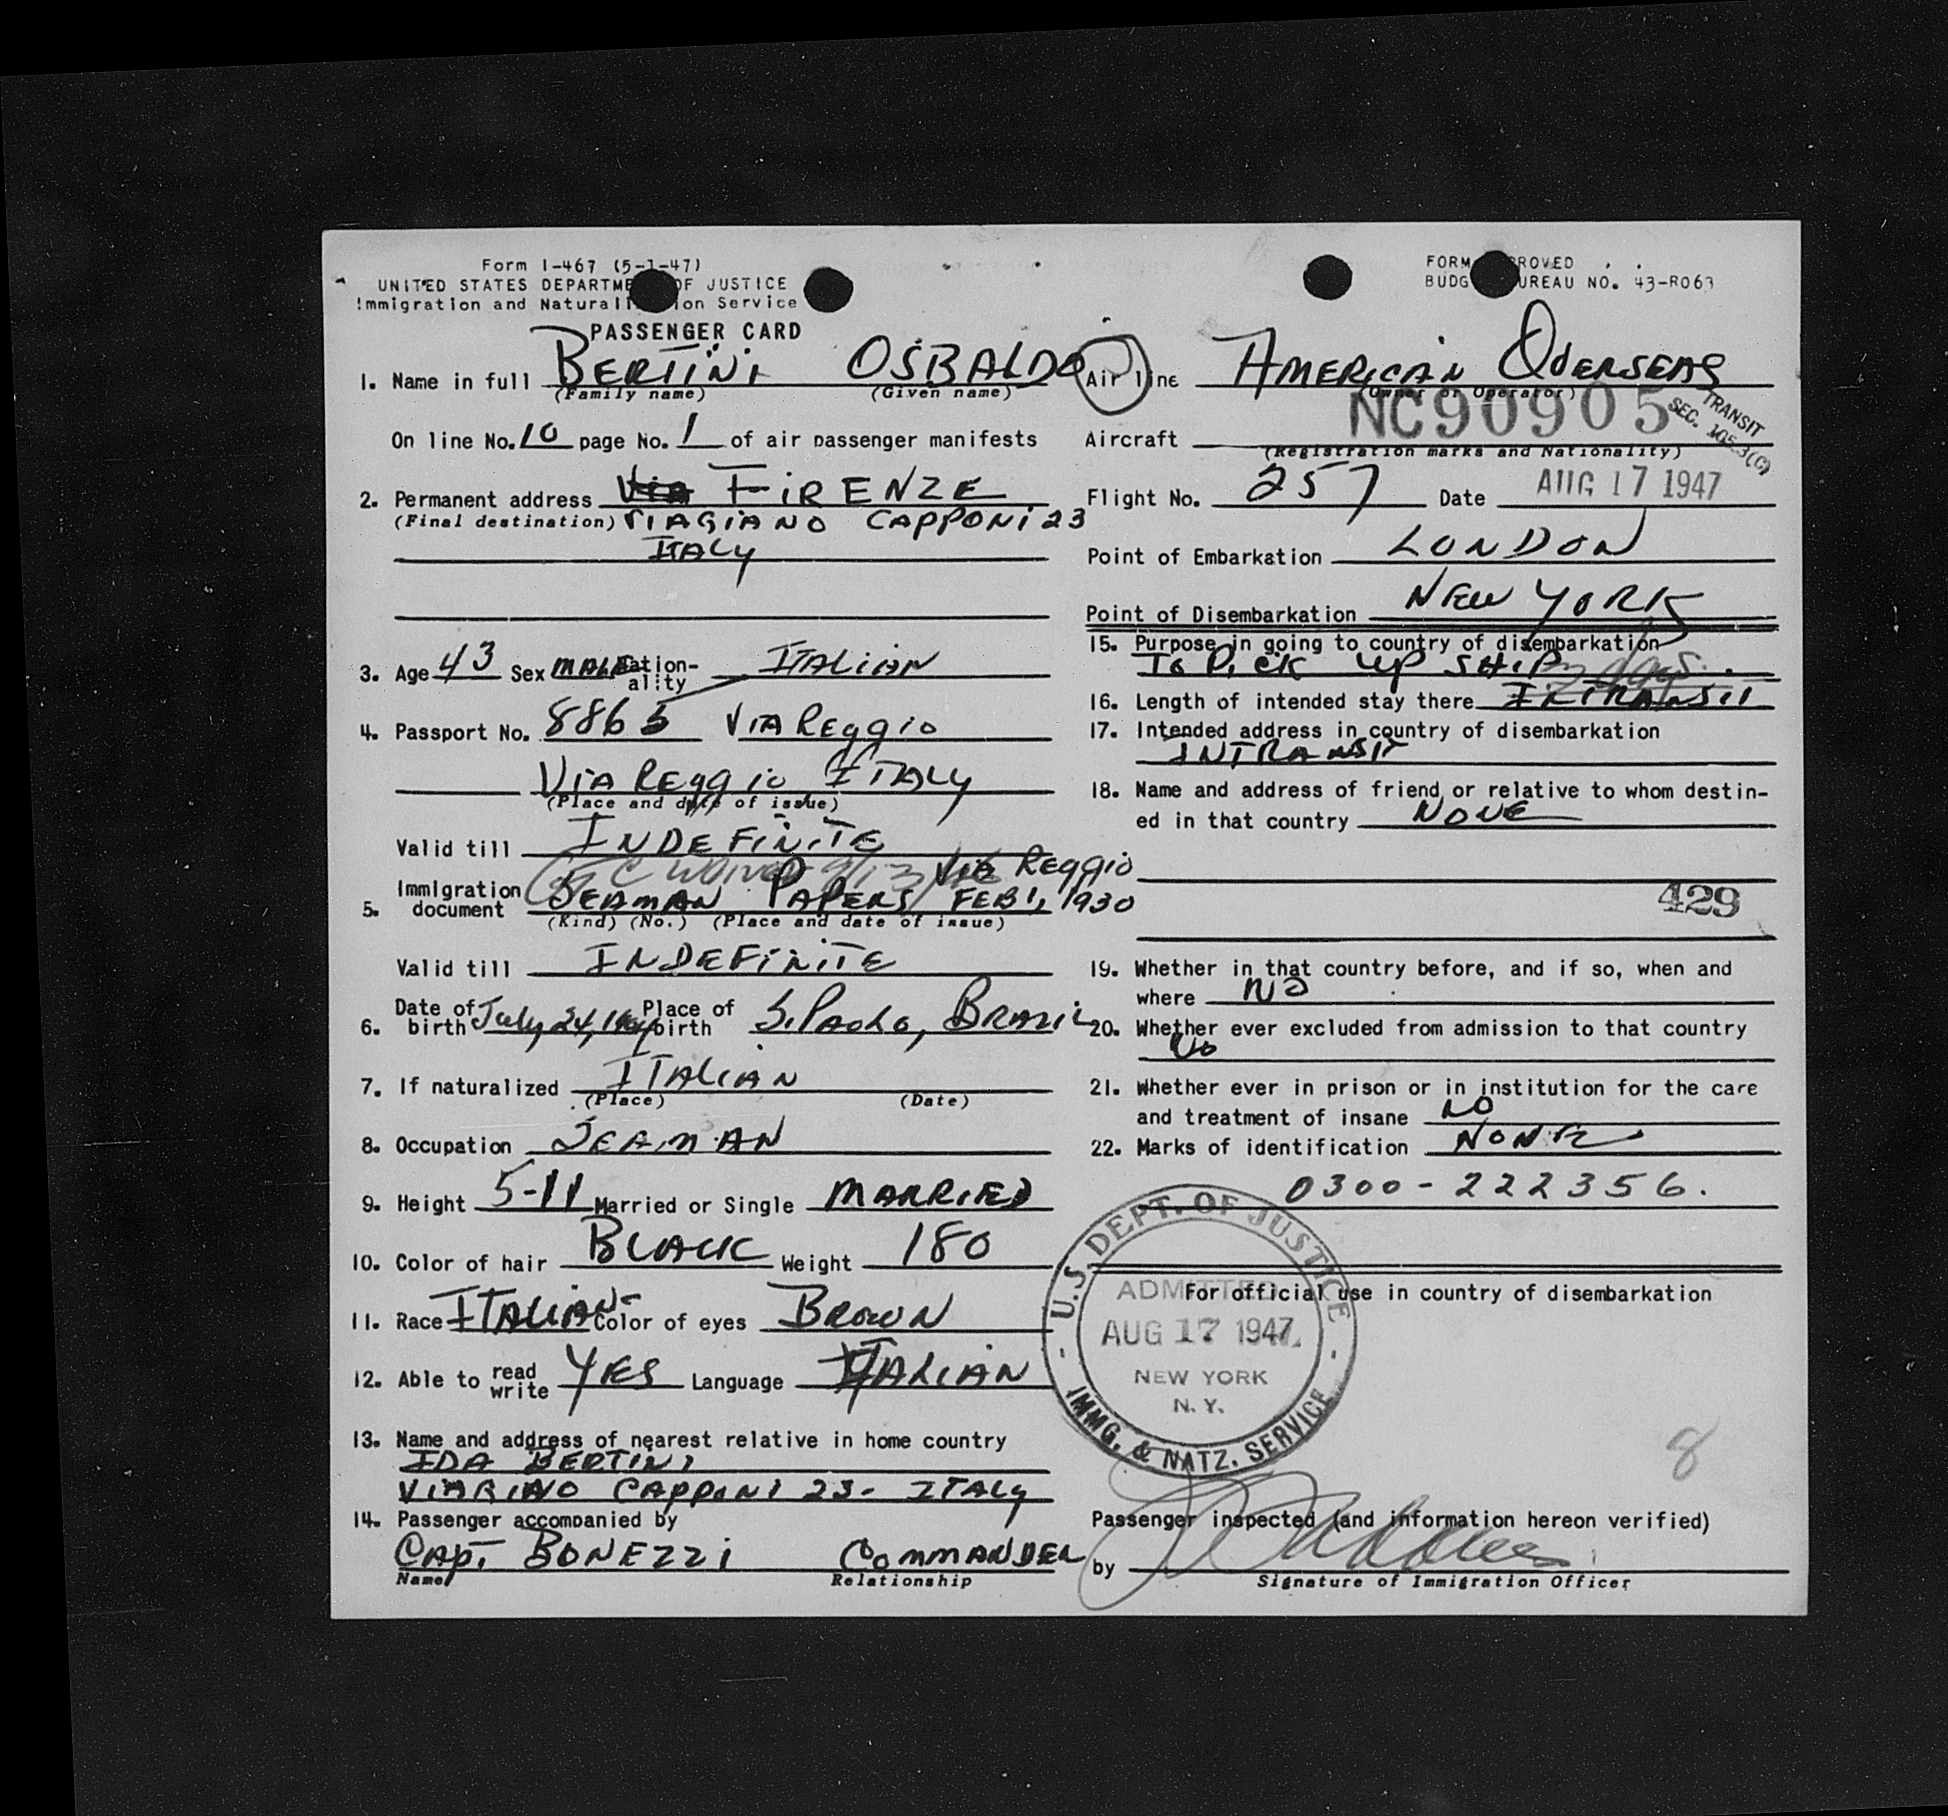 Form I-467 (5-1-47)
UNITED STATES DEPARTME OF JUSTICE
Immigration and Naturali ion Service
PASSENGER CARD
1. Name in full BERTINI OSBALDO
(Family name) (Given name)
On line No. 10 page No. 1 of air passenger manifests
2. Permanent address VIA FIRENZE
(Final destination) VIAGIANO CAPPONI 23
ITALY
3. Age 43 Sex MALE Nation-ality ITALIAN
4. Passport No. 8865 VIAREGGIO
VIAREGGIO ITALY
(Place and date of issue)
Valid till INDEFINITE
VIA REGGIO
5. Immigration document SEAMAN PAPERS FEB 1, 1930
(Kind) (No.) (Place and date of issue)
Valid till INDEFINITE
6. Date of birth July 24, 1904 Place of birth S. PAOLO, BRAZIL
7. If naturalized ITALIAN
(Place) (Date)
8. Occupation SEAMAN
9. Height 5-11 Married or Single MARRIED
10. Color of hair BLACK Weight 180
11. Race ITALIAN- Color of eyes BROWN
12. Able to read write YES Language ITALIAN
13. Name and address of nearest relative in home country
IDA BERTINI
CAPPONI 23- ITALY
14. Passenger accompanied by
CAPT. BONEZZI COMMANDER
Name Relationship
FORM ROVED
BUDG UREAU NO. 43-R063
Air line AMERICAN OVERSEAS
(Owner or Operator)
Aircraft NC90905
TRANSIT
SEC.
(Registration marks and Nationality)
Flight No. 257 Date AUG 17 1947
Point of Embarkation LONDON
Point of Disembarkation NEW YORK
15. Purpose in going to country of disembarkation
TO PICK UP SHIP
16. Length of intended stay there 2 days INTRANSIT
17. Intended address in country of disembarkation
INTRANSIT
18. Name and address of friend or relative to whom destin-
ed in that country NONE
429
19. Whether in that country before, and if so, when and
where NO
20. Whether ever excluded from admission to that country
No
21. Whether ever in prison or in institution for the care
and treatment of insane NO
22. Marks of identification NONE
0300-222356.
For official use in country of disembarkation
U.S. DEPT. OF JUSTICE
ADMITTED
AUG 17 1947
NEW YORK
N.Y.
IMMG. & NATZ. SERVICE
8
Passenger inspected (and information hereon verified)
by
Signature of Immigration Officer